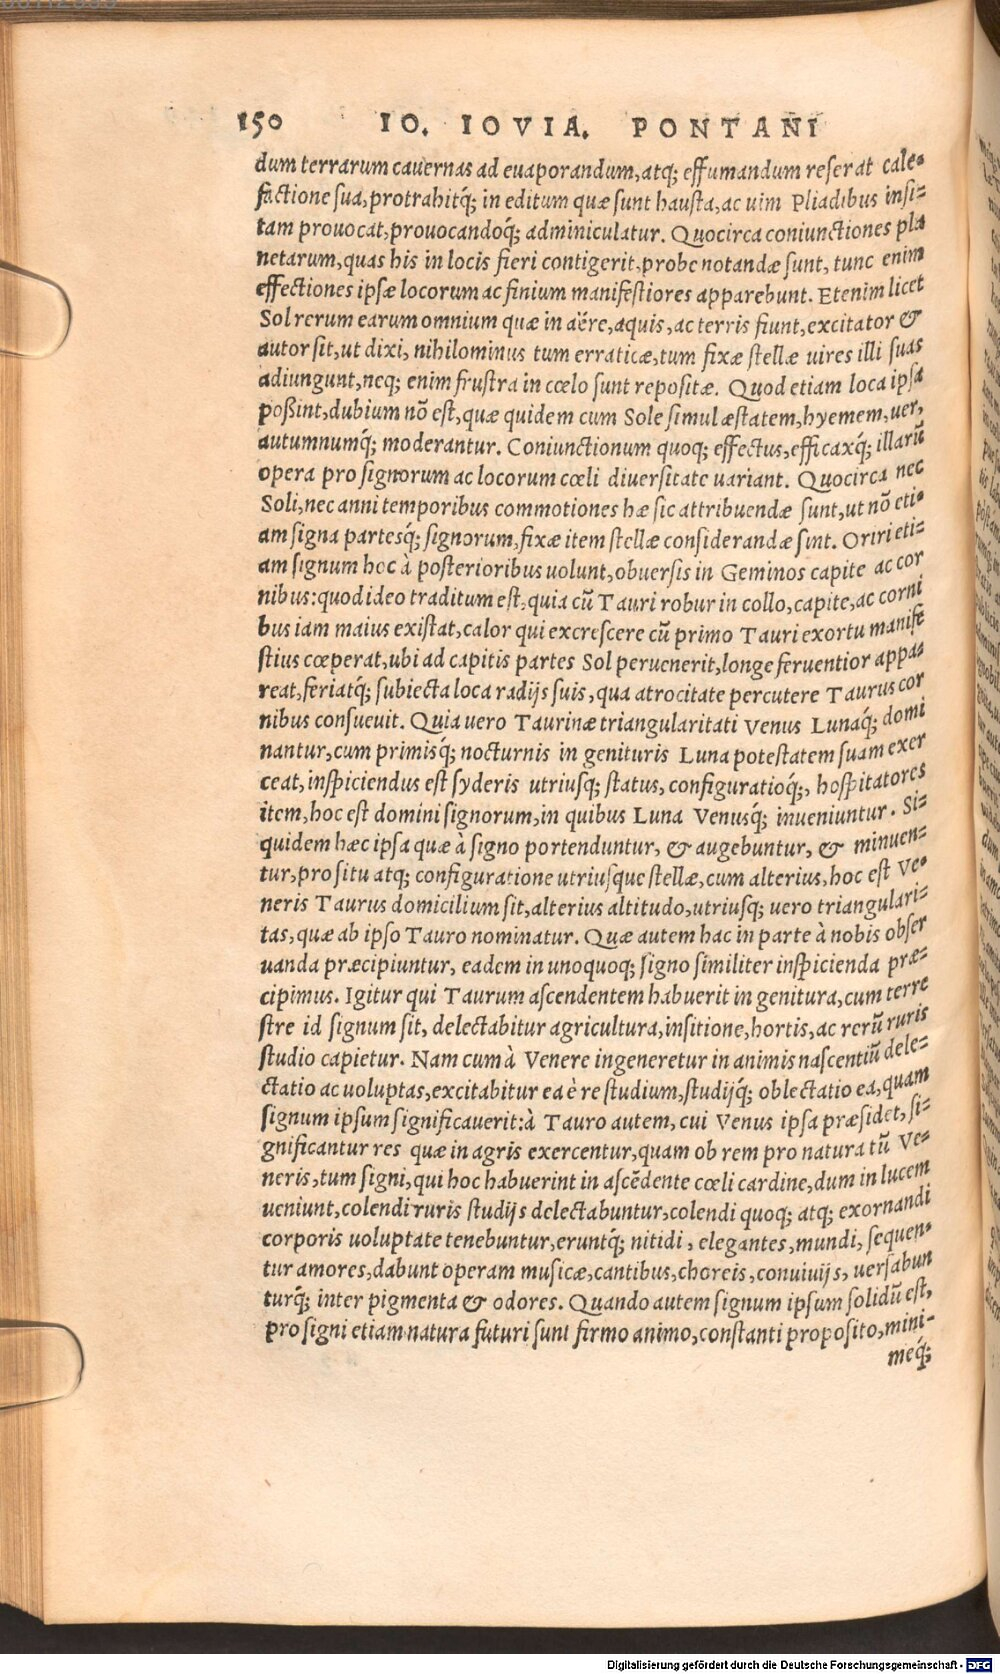 150 IO. IOVIA. PONTANI
dum terrarum cauernas ad euaporandum, atq; effumandum reserat cale-
factione sua, protrahitq́; in editum quæ sunt hausta, ac uim Pliadibus insi-
tam prouocat, prouocandoq́; adminiculatur. Quocirca coniunctiones pla
netarum, quas his in locis fieri contigerit, probe notandæ sunt, tunc enim
effectiones ipsæ locorum ac finium manifestiores apparebunt. Etenim licet
Sol rerum earum omnium quæ in aëre, aquis, ac terris fiunt, excitator &
autor sit, ut dixi, nihilominus tum erraticæ, tum fixæ stellæ uires illi suas
adiungunt, neq; enim frustra in cœlo sunt repositæ. Quod etiam loca ipsa
possint, dubium nõ est, quæ quidem cum Sole simul æstatem, hyemem, uer,
autumnumq́; moderantur. Coniunctionum quoq; effectus, efficaxq́; illarũ
opera pro signorum ac locorum cœli diuersitate uariant. Quocirca nec
Soli, nec anni temporibus commotiones hæ sic attribuendæ sunt, ut nõ eti-
am signa partesq́; signorum, fixæ item stellæ considerandæ sint. Oriri eti-
am signum hoc à posterioribus uolunt, obuersis in Geminos capite ac cor
nibus: quod ideo traditum est, quia cũ Tauri robur in collo, capite, ac corni
bus iam maius existat, calor qui excrescere cũ primo Tauri exortu manife
stius cœperat, ubi ad capitis partes Sol peruenerit, longe feruentior appa-
reat, feriatq́; subiecta loca radijs suis, qua atrocitate percutere Taurus cor
nibus consueuit. Quia uero Taurinæ triangularitati Venus Lunaq́; domi
nantur, cum primisq́; nocturnis in genituris Luna potestatem suam exer
ceat, inspiciendus est syderis utriusq; status, configuratioq́;, hospitatores
item, hoc est domini signorum, in quibus Luna Venusq́; inueniuntur. Si-
quidem hæc ipsa quæ à signo portenduntur, & augebuntur, & minuen-
tur, pro situ atq; configuratione utriusque stellæ, cum alterius, hoc est Ve-
neris Taurus domicilium sit, alterius altitudo, utriusq; uero triangulari-
tas, quæ ab ipso Tauro nominatur. Quæ autem hac in parte à nobis obser
uanda præcipiuntur, eadem in unoquoq; signo similiter inspicienda præ-
cipimus. Igitur qui Taurum ascendentem habuerit in genitura, cum terre
stre id signum sit, delectabitur agricultura, insitione, hortis, ac rerũ ruris
studio capietur. Nam cum à Venere ingeneretur in animis nascentiũ dele-
ctatio ac uoluptas, excitabitur ea è re studium, studijq́; oblectatio ea, quam
signum ipsum significauerit: à Tauro autem, cui Venus ipsa præsidet, si-
gnificantur res quæ in agris exercentur, quam ob rem pro natura tũ Ve-
neris, tum signi, qui hoc habuerint in ascẽdente cœli cardine, dum in lucem
ueniunt, colendi ruris studijs delectabuntur, colendi quoq; atq; exornandi
corporis uoluptate tenebuntur, eruntq́; nitidi, elegantes, mundi, sequen-
tur amores, dabunt operam musicæ, cantibus, choreis, conuiuijs, uersabun
turq́; inter pigmenta & odores. Quando autem signum ipsum solidũ est,
pro signi etiam natura futuri sunt firmo animo, constanti proposito, mini-
meq́;
Digitalisierung gefördert durch die Deutsche Forschungsgemeinschaft - DFG